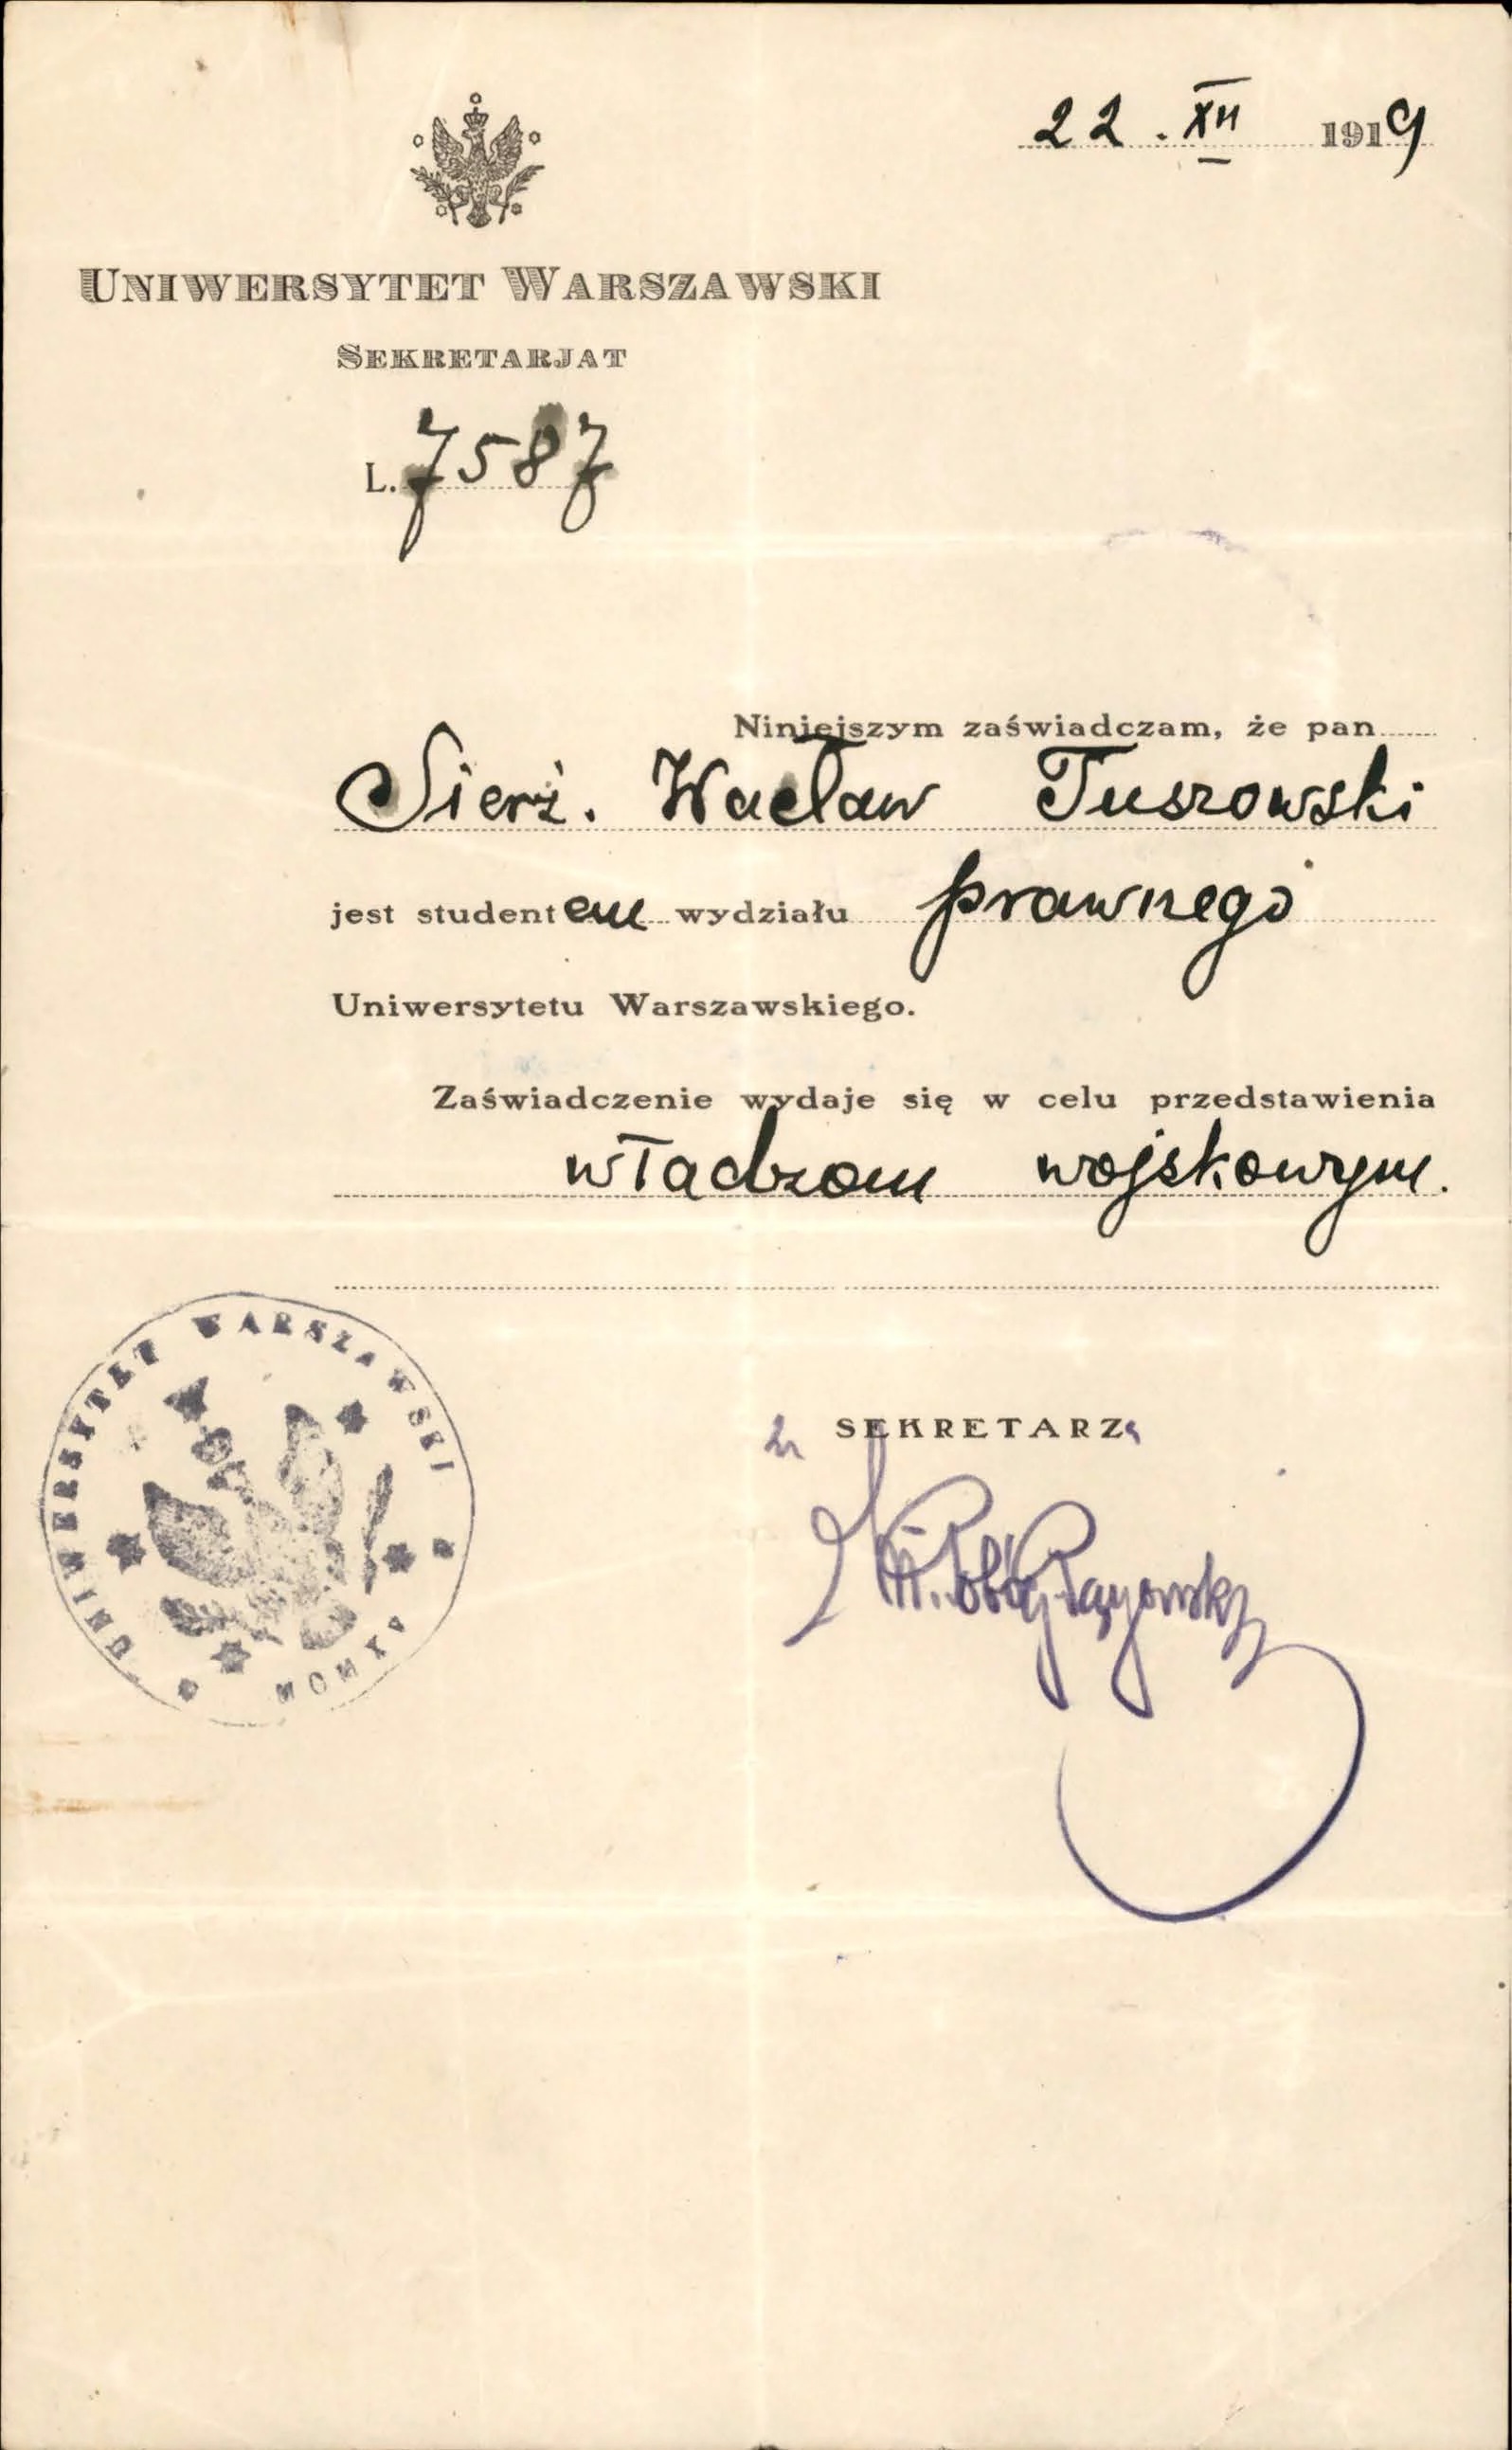 22. XII 1919
UNIWERSYTET WARSZAWSKI
SEKRETARJAT
L. 7587
Niniejszym zaświadczam, że pan
Sierż. Wacław Tuszowski
jest studentem wydziału prawnego
Uniwersytetu Warszawskiego.
Zaświadczenie wydaje się w celu przedstawienia
władzom wojskowym.
UNIWERSYTET WARSZAWSKI
za SEKRETARZa